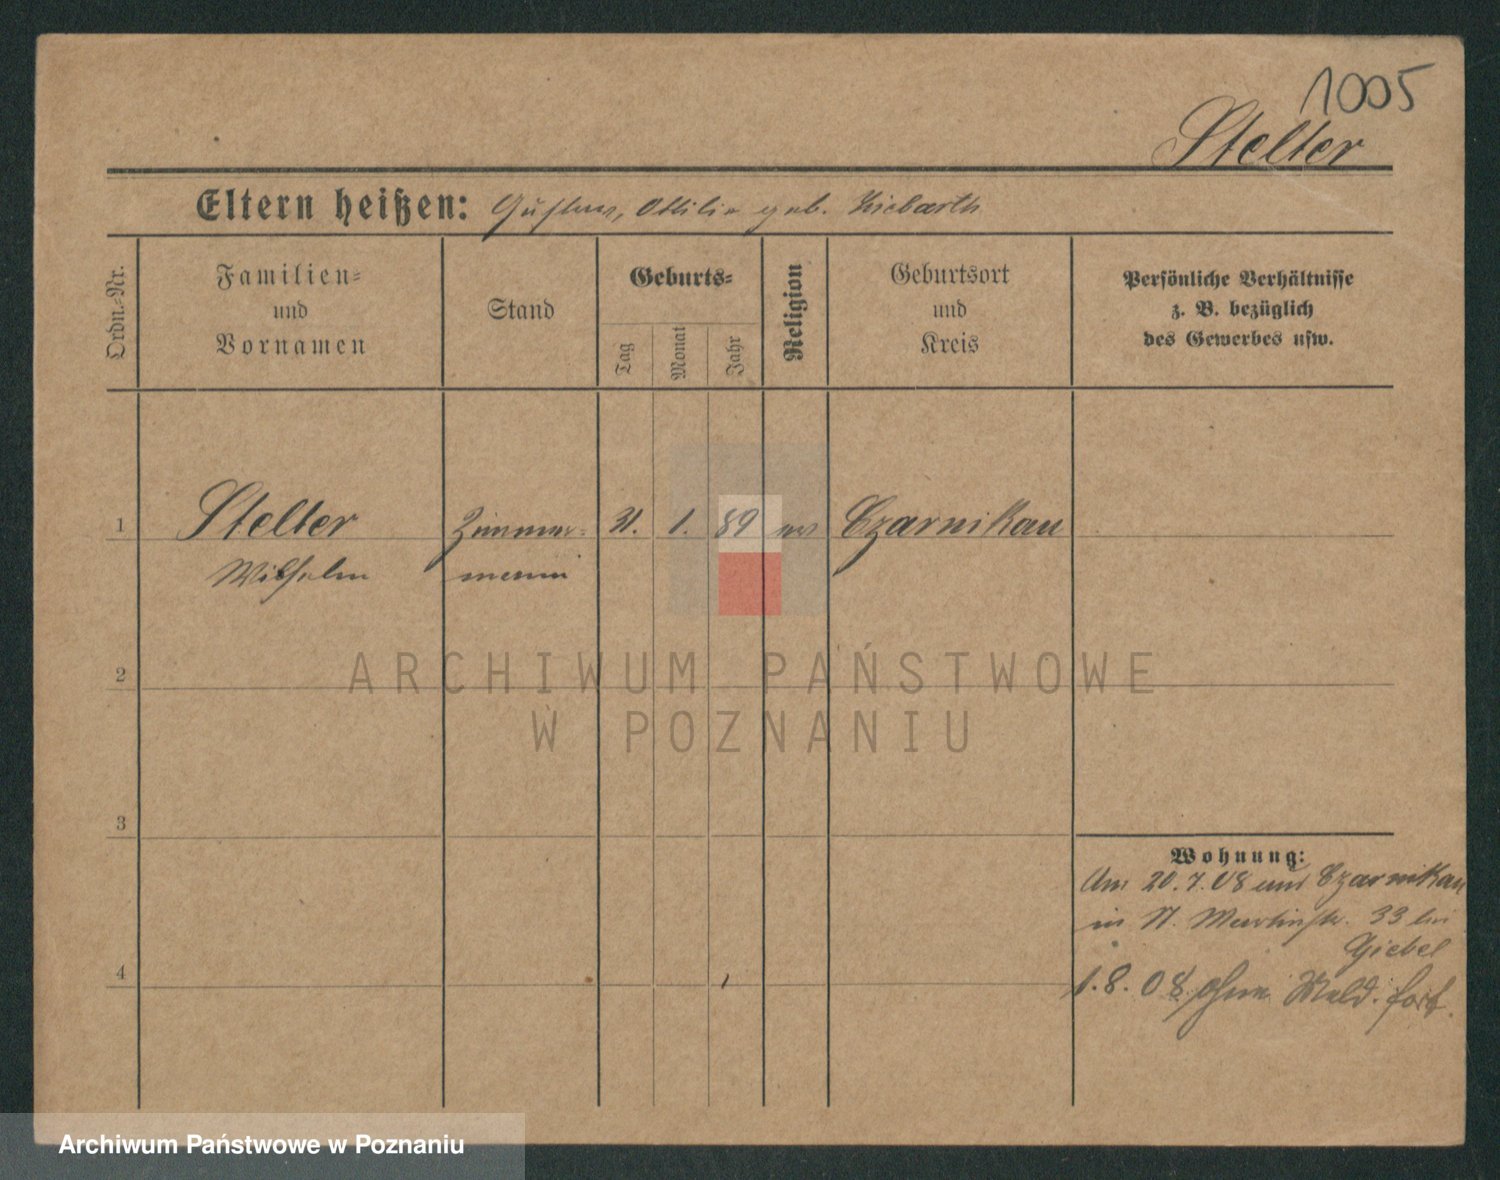 1005
Stelter
Eltern heißen: Gustav, Ottilie geb. Liebarth
Ordn.-Nr.
Familien-
und
Vornamen
Stand
Geburts-
Tag
Monat
Jahr
Religion
Geburtsort
und
Kreis
Persönliche Verhältnisse
z. B. bezüglich
des Gewerbes usw.
1
Stelter
Wilhelm
Zimmer-
mann
31.
1.
89
ev
Czarnikau
2
ARCHIWUM PAŃSTWOWE
W POZNANIU
3
Wohnung:
Am 20.7.08 aus Czarnikau
in St. Martinstr. 33 bei
Giebel
4
1.8.08 ohne Meld. fort.
Archiwum Państwowe w Poznaniu